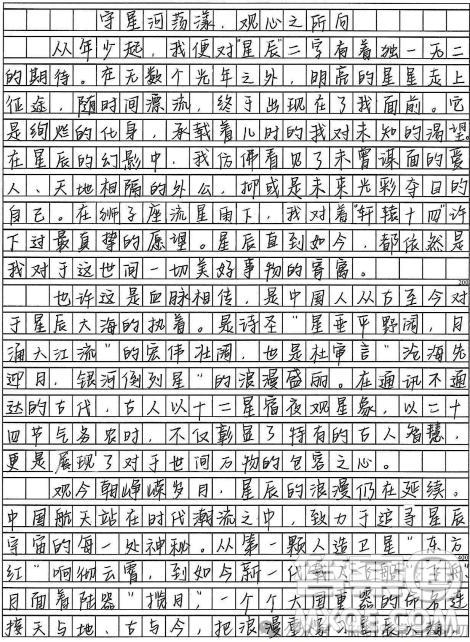 守星河荡漾，观心之所向
从年少起，我便对"星辰"二字有着独一无二
的期待。在无数个光年之外，明亮的星星走上
征途，随时间漂流，终于出现在了我面前。它
是绚烂的化身，承载着儿时的我对未知的渴望。
在星辰的幻影中，我仿佛看见了未曾谋面的爱
人、天地相隔的外公，抑或是未来光彩夺目的
自己。在狮子座流星雨下，我对着"轩辕十四"许
下过最真挚的愿望。星辰直到如今，都依然是
我对于这世间一切美好事物的寄寓。
200
也许这是血脉相传，是中国人从古至今对
于星辰大海的执着。是诗圣"星垂平野阔，月
涌大江流"的宏伟壮阔，也是杜审言"沧海先
迎月，银河倒列星"的浪漫盛丽。在通讯不通
达的古代，古人以十二星宿夜观星象，以二十
四节气务农时，不仅彰显了特有的古人智慧，
更是展现了对于世间万物的包容之心。
观今朝峥嵘岁月，星辰的浪漫仍在延续。
中国航天站在时代潮流之中，致力于追寻星辰
宇宙的每一处神秘。从第一颗人造卫星"东方
400
红"响彻云霄，到如今新一代载人飞船
月面着陆器"揽月"，一个个大国重器的命名连
接天与地、古与今，把浪漫